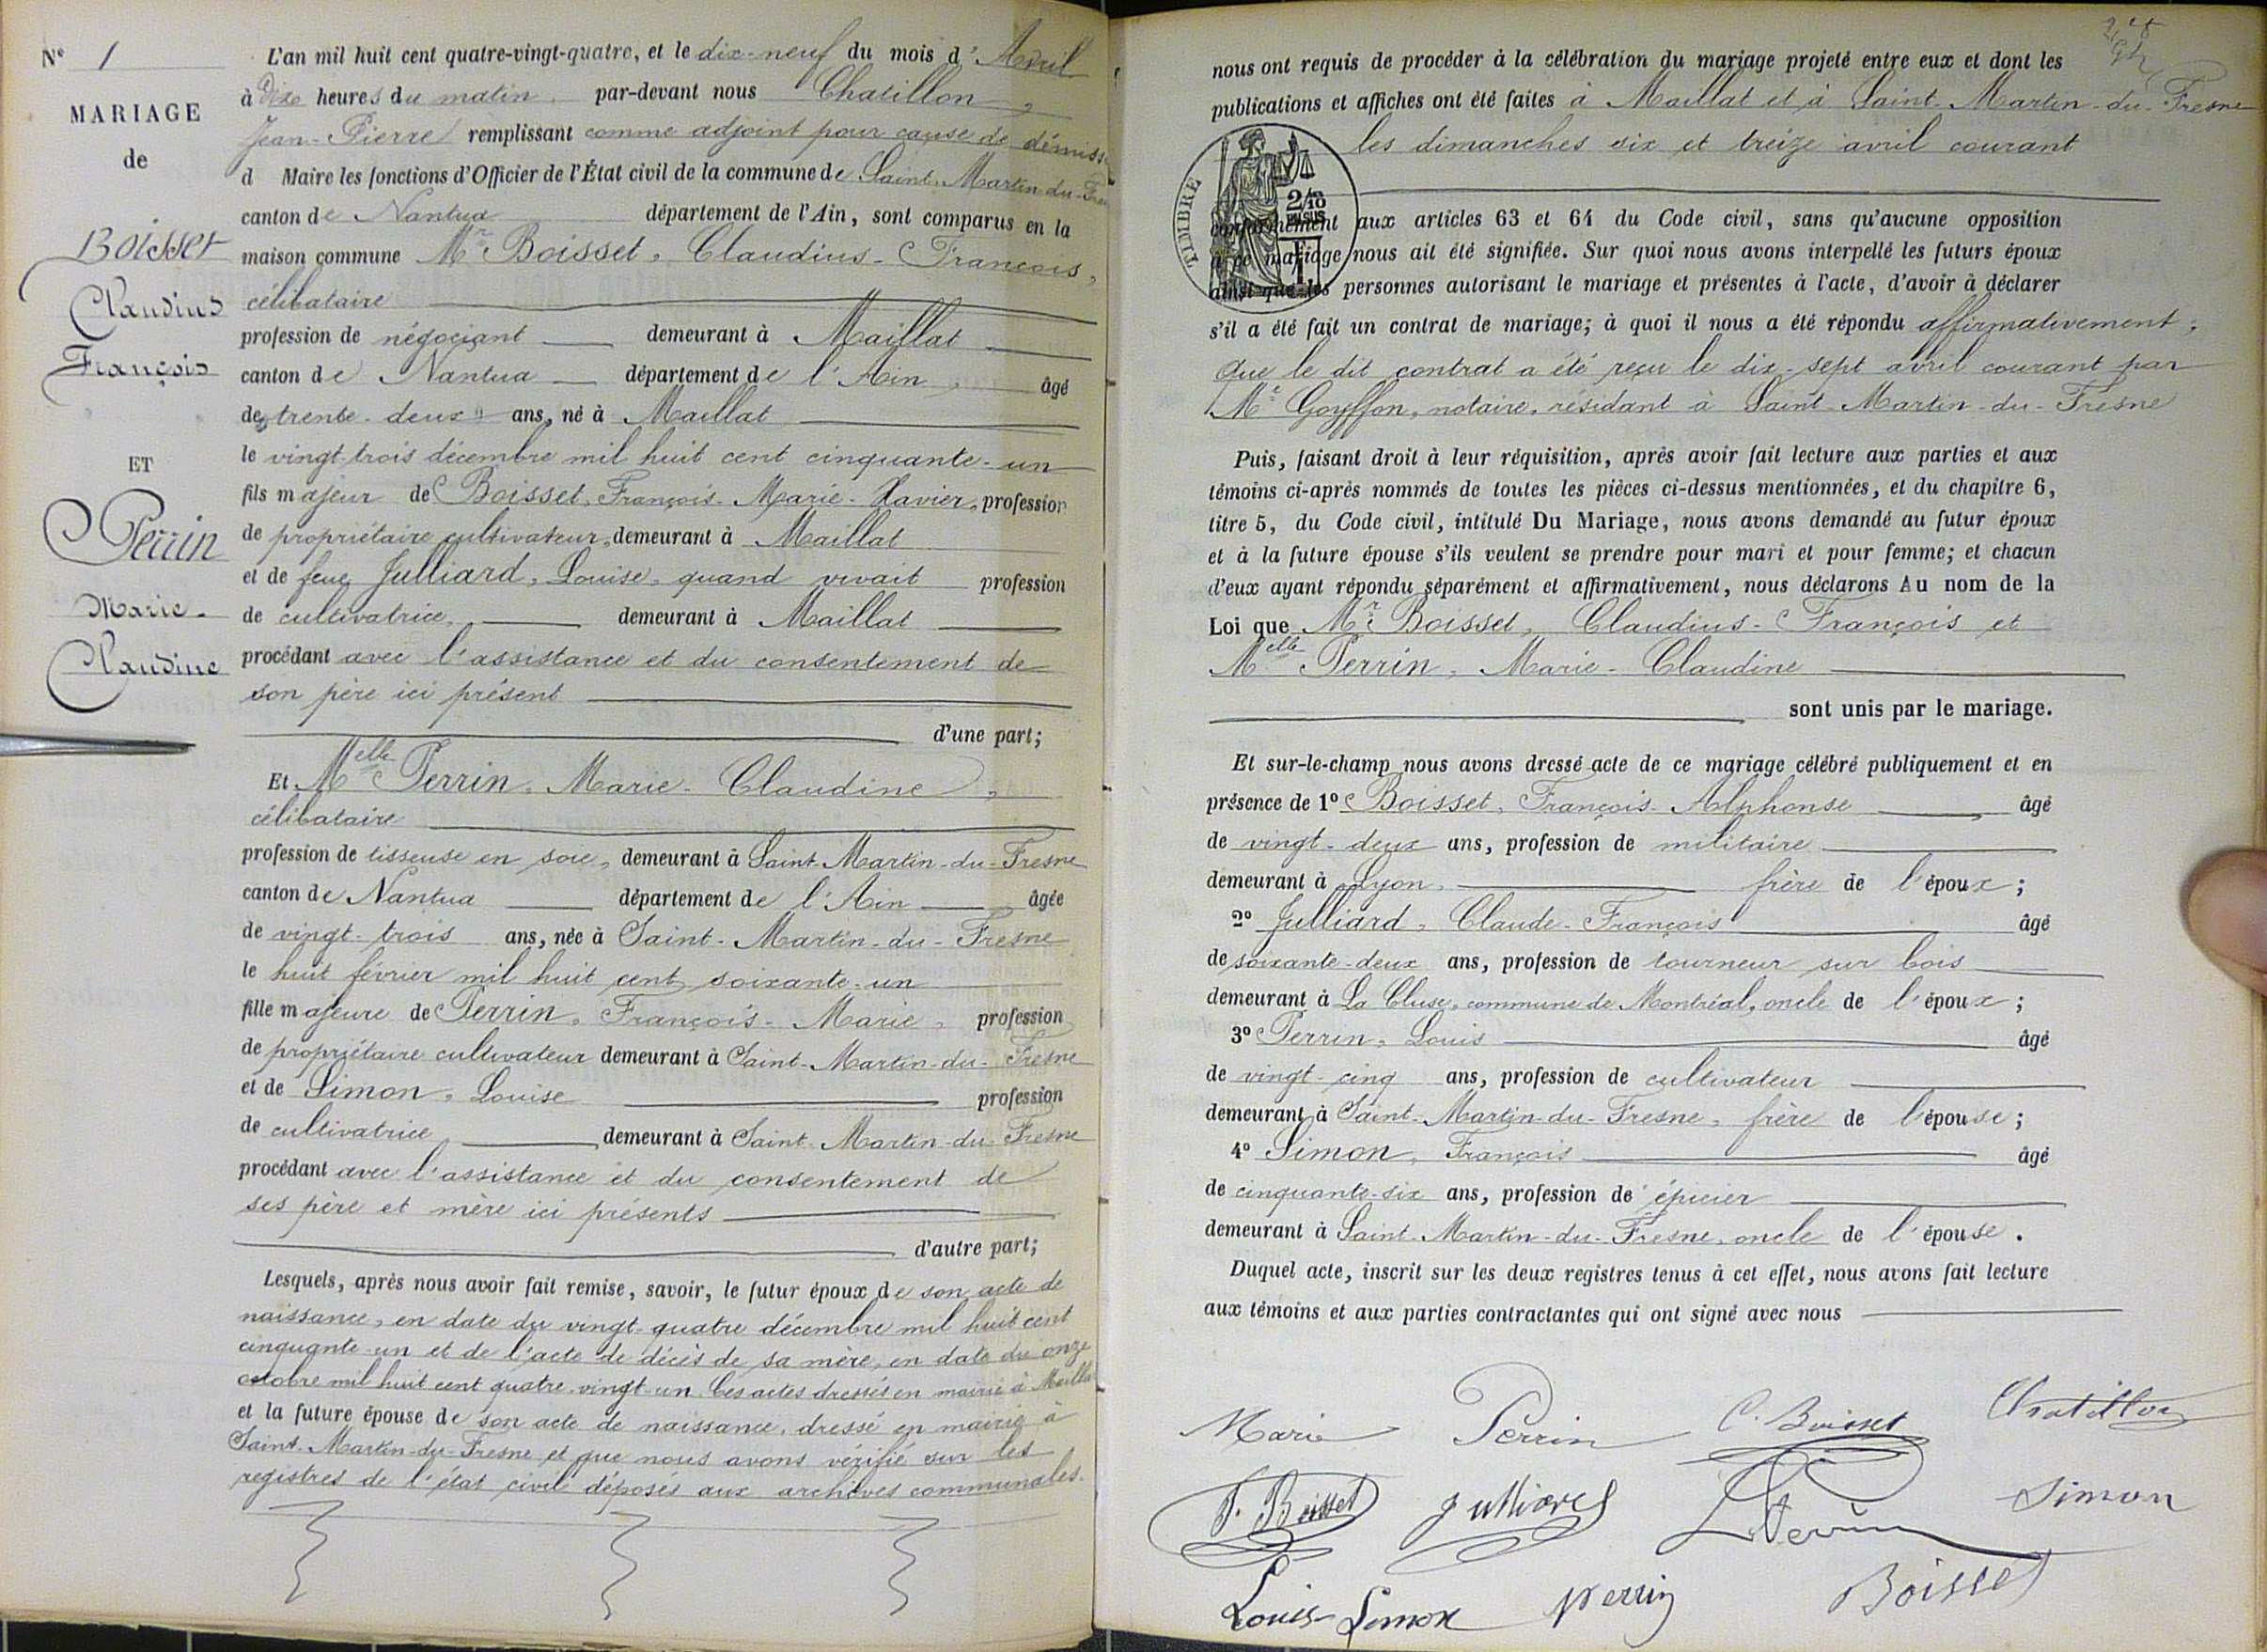 N° 1
MARIAGE
de
Boisset
Claudius
François
ET
Perrin
Marie-
Claudine
L'an mil huit cent quatre-vingt-quatre, et le dix-neuf du mois d'Avril
à Dix heures du matin par-devant nous Chatillon,
Jean-Pierre remplissant comme adjoint pour cause de démiss
d Maire les fonctions d'Officier de l'État civil de la commune de Saint-Martin-du-Fres
canton de Nantua département de l'Ain, sont comparus en la
maison commune Mr Boisset, Claudius-François,
célibataire
profession de négociant demeurant à Maillat
canton de Nantua département de l'Ain, âgé
de trente-deux ans, né à Maillat
le vingt-trois décembre mil huit cent cinquante-un
fils majeur de Boisset, François-Marie-Xavier, profession
de propriétaire cultivateur, demeurant à Maillat
et de feue Julliard, Louise, quand vivait profession
de cultivatrice, demeurant à Maillat
procédant avec l'assistance et du consentement de
son père ici présent
d'une part;
Et Melle Perrin, Marie-Claudine,
célibataire
profession de tisseuse en soie, demeurant à Saint-Martin-du-Fresne
canton de Nantua département de l'Ain âgée
de vingt-trois ans, née à Saint-Martin-du-Fresne
le huit février mil huit cent soixante-un
fille majeure de Perrin, François-Marie, profession
de propriétaire cultivateur demeurant à Saint-Martin-du-Fresne
et de Simon, Louise profession
de cultivatrice, demeurant à Saint-Martin-du-Fresne
procédant avec l'assistance et du consentement de
ses père et mère ici présents
d'autre part;
Lesquels, après nous avoir fait remise, savoir, le futur époux de son acte de
naissance, en date du vingt-quatre décembre mil huit cent
cinquante-un et de l'acte de décès de sa mère, en date du onze
octobre mil huit cent quatre-vingt-un. Ces actes dressés en mairie à Maillat
et la future épouse de son acte de naissance, dressé en mairie à
Saint-Martin-du-Fresne et que nous avons vérifié sur les
registres de l'état civil déposés aux archives communales.
nous ont requis de procéder à la célébration du mariage projeté entre eux et dont les
publications et affiches ont été faites à Maillat et à Saint-Martin-du-Fresne
les dimanches six et treize avril courant
TIMBRE
2/10
EN SUS
conformément aux articles 63 et 64 du Code civil, sans qu'aucune opposition
à ce mariage nous ait été signifiée. Sur quoi nous avons interpellé les futurs époux
ainsi que les personnes autorisant le mariage et présentes à l'acte, d'avoir à déclarer
s'il a été fait un contrat de mariage; à quoi il nous a été répondu affirmativement,
que le dit contrat a été reçu le dix-sept avril courant par
Me Goyffon, notaire, résidant à Saint-Martin-du-Fresne
Puis, faisant droit à leur réquisition, après avoir fait lecture aux parties et aux
témoins ci-après nommés de toutes les pièces ci-dessus mentionnées, et du chapitre 6,
titre 5, du Code civil, intitulé Du Mariage, nous avons demandé au futur époux
et à la future épouse s'ils veulent se prendre pour mari et pour femme; et chacun
d'eux ayant répondu séparément et affirmativement, nous déclarons Au nom de la
Loi que Mr Boisset, Claudius-François et
Melle Perrin, Marie-Claudine
sont unis par le mariage.
Et sur-le-champ nous avons dressé acte de ce mariage célébré publiquement et en
présence de 1° Boisset, François-Alphonse âgé
de vingt-deux ans, profession de militaire
demeurant à Lyon, frère de l'époux;
2° Julliard, Claude-François âgé
de soixante-deux ans, profession de tourneur sur bois
demeurant à La Cluse, commune de Montréal, oncle de l'époux;
3° Perrin, Louis âgé
de vingt-cinq ans, profession de cultivateur
demeurant à Saint-Martin-du-Fresne, frère de l'épouse;
4° Simon, François âgé
de cinquante-six ans, profession de épicier
demeurant à Saint-Martin-du-Fresne, oncle de l'épouse.
Duquel acte, inscrit sur les deux registres tenus à cet effet, nous avons fait lecture
aux témoins et aux parties contractantes qui ont signé avec nous
Marie Perrin C. Boisset Chatillon
F. Boisset Julliard Perrin Simon
Louis Simon Perrin Boisset